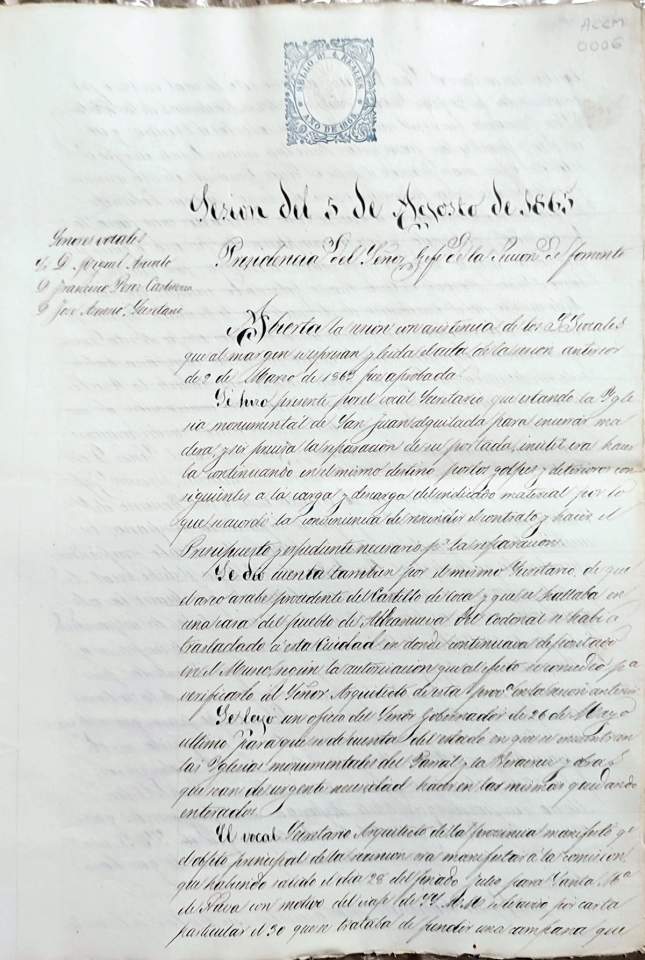 ACCM
0006
SELLO 3º 4 REALES
AÑO DE 1865
Sesion del 5 de Agosto de 1865
Presidencia del Señor Gefe de la Seccion de Fomento
Señores vocales
D. Francisco Perez Castrobeza
D. Jose Asensio. Secretario
Abierta la sesion con asistencia de los S.S. vocales
que al margen se espresan y leida el acta de la sesion anterior
de 2 de Marzo de 1865 fue aprobada
Se hizo presente por el vocal Secretario que estando la Ygle
sia monumental de San Juan alquilada para encerrar ma
dera, y ser precisa la reparacion de su portada, inutil era hacer
la continuando en el mismo destino por los golpes y deterioros con
siguientes a la carga y descarga del indicado material por lo
que se acordó la conveniencia de rescindir el contrato y hacer el
Presupuesto y espediente necesario pª la reparacion
Se dio cuenta tambien por el mismo Secretario, de que
el arco arabe procedente del Castillo de Coca y que se hallaba en
una casa del pueblo de Villanueva del Codonal se habia
trasladado á esta Ciudad en donde continuava depositado
en el Museo, segun la autorizacion que al efecto se concedió pª
verificarlo al Señor Arquitecto de esta provª en la sesion anterior
Se leyo un oficio del Señor Gobernador de 26 de Mayo
ultimo para que se de cuenta del estado en que se encuentran
las Yglesias monumentales del Parral y la Veracruz y obras
que sean de urgente necesidad hacer en las mismas quedando
enterados
El vocal Secretario Arquitecto de la provincia manifestó qe
el objeto principal de la reunion era manifestar á la comision
que habiendo salido el dia 28 del pasado Julio para Santa Mª
de Nieva con motivo del viaje de SS. M.M. se le avisó por carta
particular el 30 que se trataba de fundir una campana que